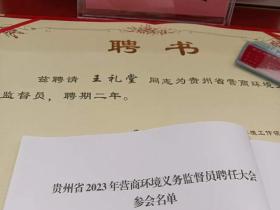 聘书
兹聘请 王礼堂 同志为贵州省营商环境
监督员，聘期二年。
贵州省2023年营商环境义务监督员聘任大会
参会名单